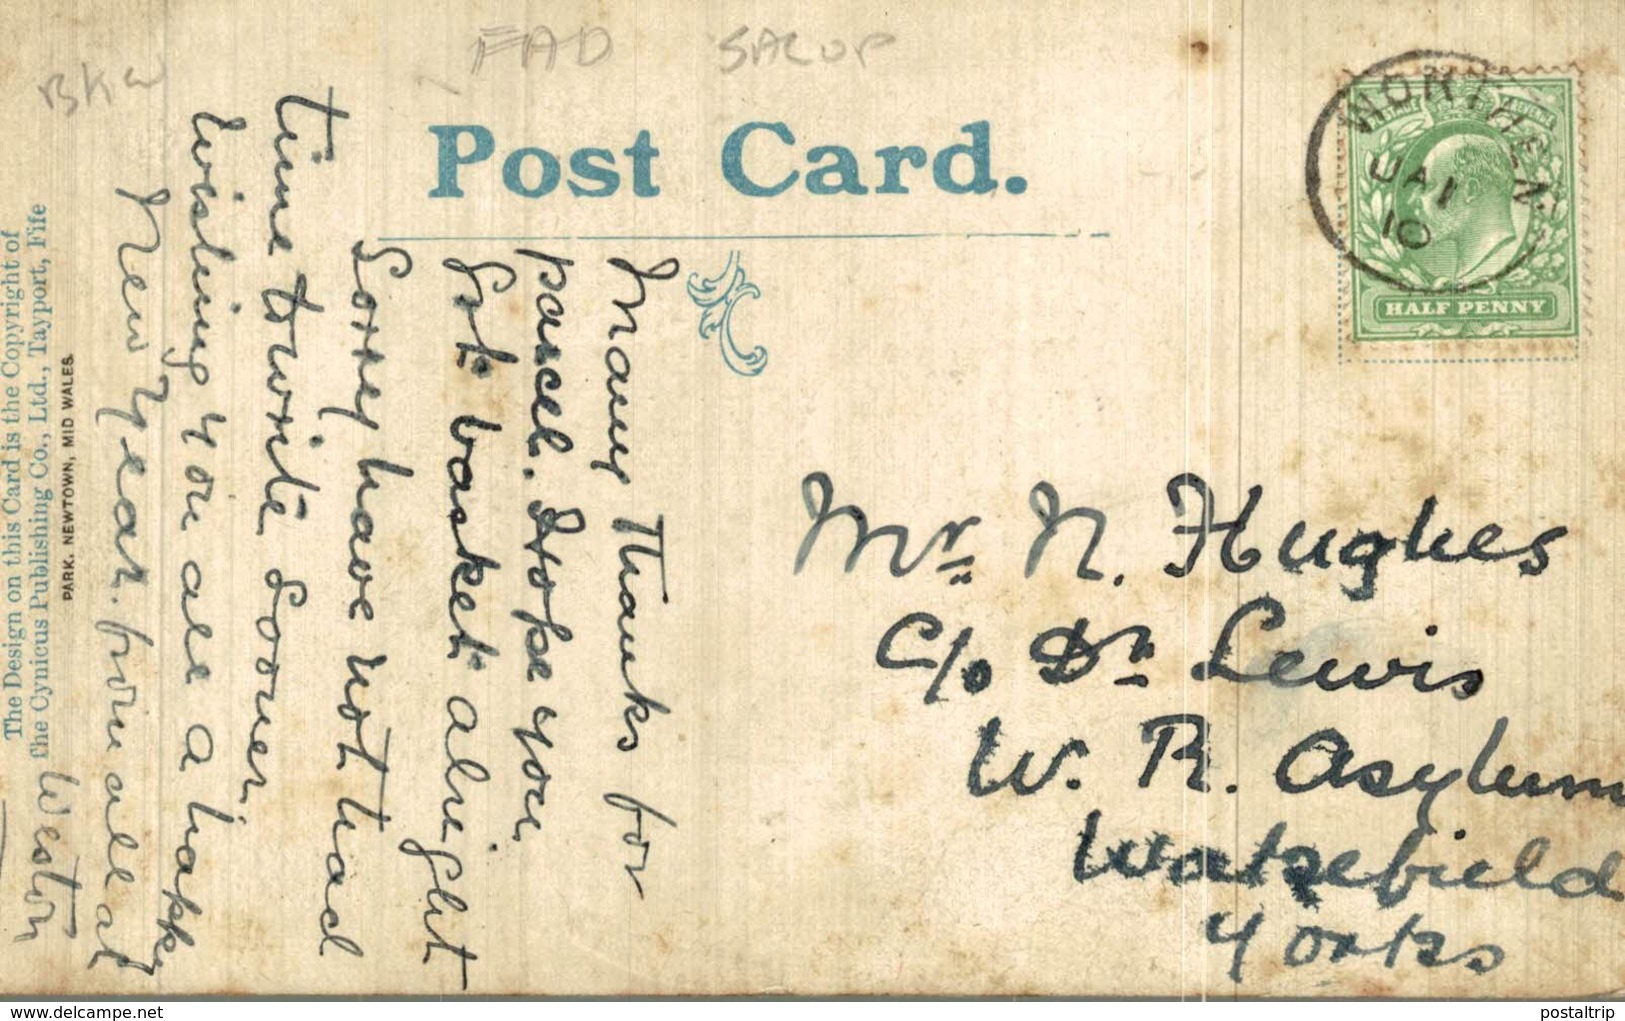 FAD SALOP
BKW
Post Card.
WORTHEN
JA 1
10
HALF PENNY
Many Thanks for
parcel. Hope you
Got basket alright
Sorrey have not had
time to write Sooner.
Wishing you all a happy
New Year. from all at
Weston
Mr. N. Hughes
C/o Dr. Lewis
W. R. Asylum
Wakefield
Yorks
The Design on this Card is the Copyright of
The Cynicus Publishing Co., Ltd., Tayport, Fife
PARK, NEWTOWN, MID WALES
www.delcampe.net
postaltrip